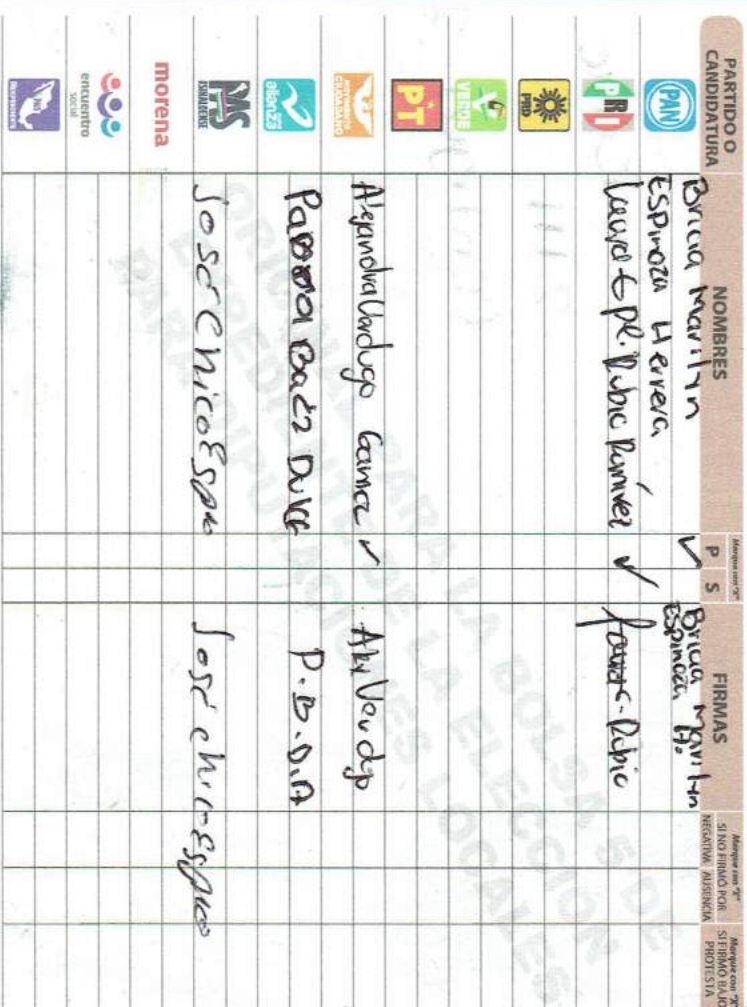 PARTIDO O CANDIDATURA
NOMBRES
Marque con "X"
P S
FIRMAS
Marque con "X"
SI NO FIRMÓ POR
NEGATIVA AUSENCIA
Marque con "X"
SI FIRMÓ BAJO PROTESTA
PAN
Bricia Marilyn ✓ Bricia Marilyn
Espinoza Herrera Espinoza H.
PRI
Rubio Ramirez ✓ Rubio
PRD
VERDE
PT
MOVIMIENTO CIUDADANO
Alejandra Verdugo Gamez ✓ Ale Verdugo
alianza
Baez Dulce P.B.D.A
PAS
SINALOENSE
José Chico José Chico
morena
encuentro social
ORIGINAL PARA LA BOLSA 5 DE
EXPEDIENTE DE LA ELECCIÓN
PARA DIPUTACIONES LOCALES